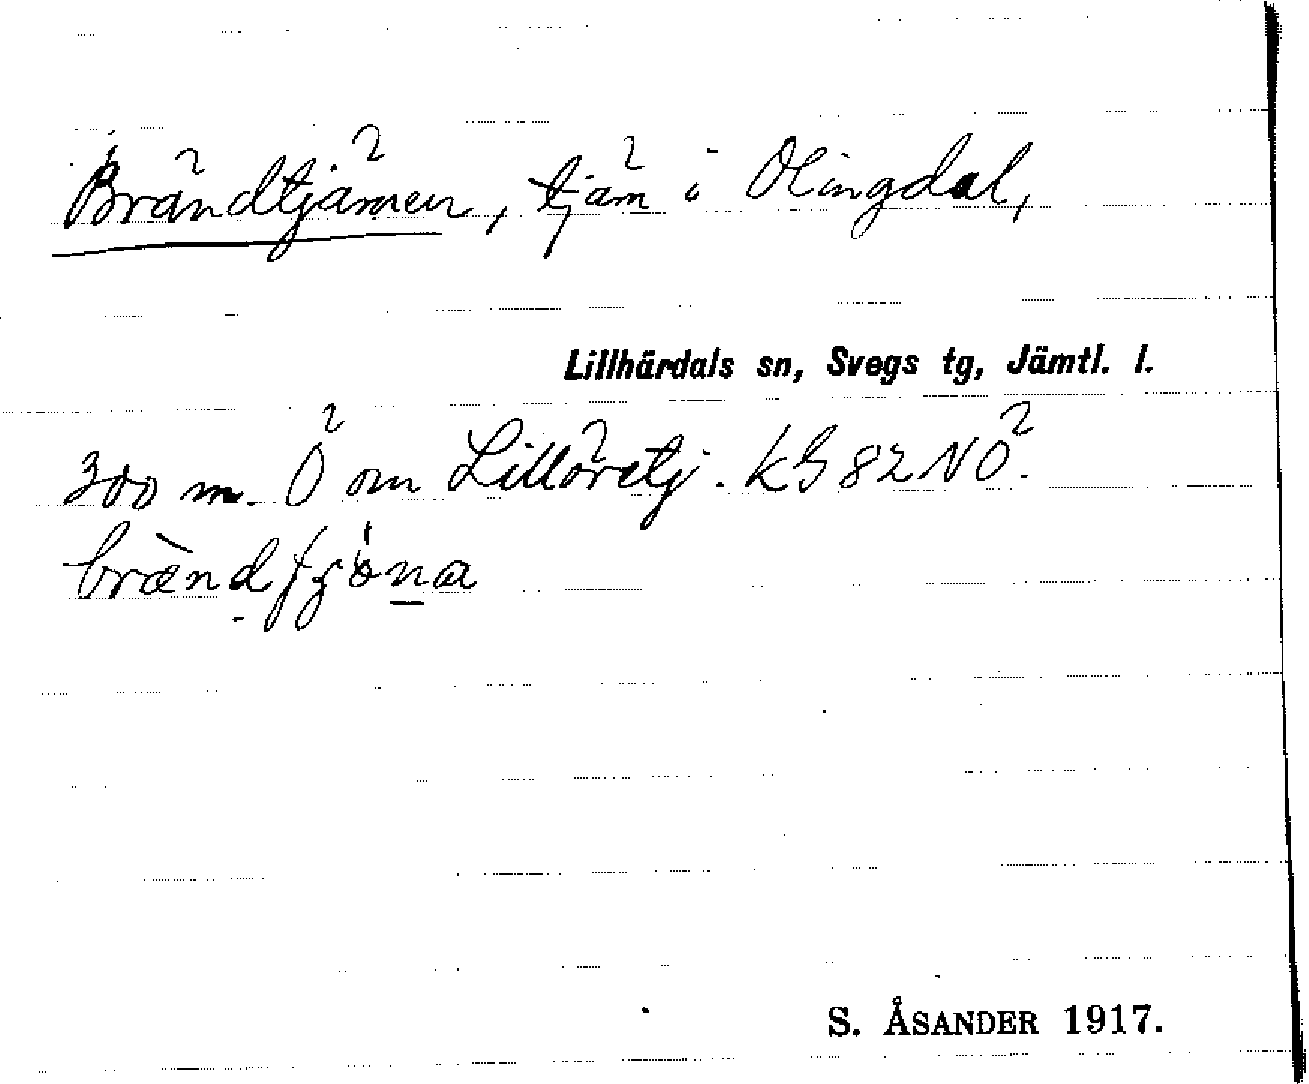 Brändtjärnen, tjärn i Olingdal,
Lillhärdals sn, Svegs tg, Jämtl. l.
300 m. Ö om Lillöretj. kG 82 NÖ.
brændtjöna
S. ÅSANDER 1917.